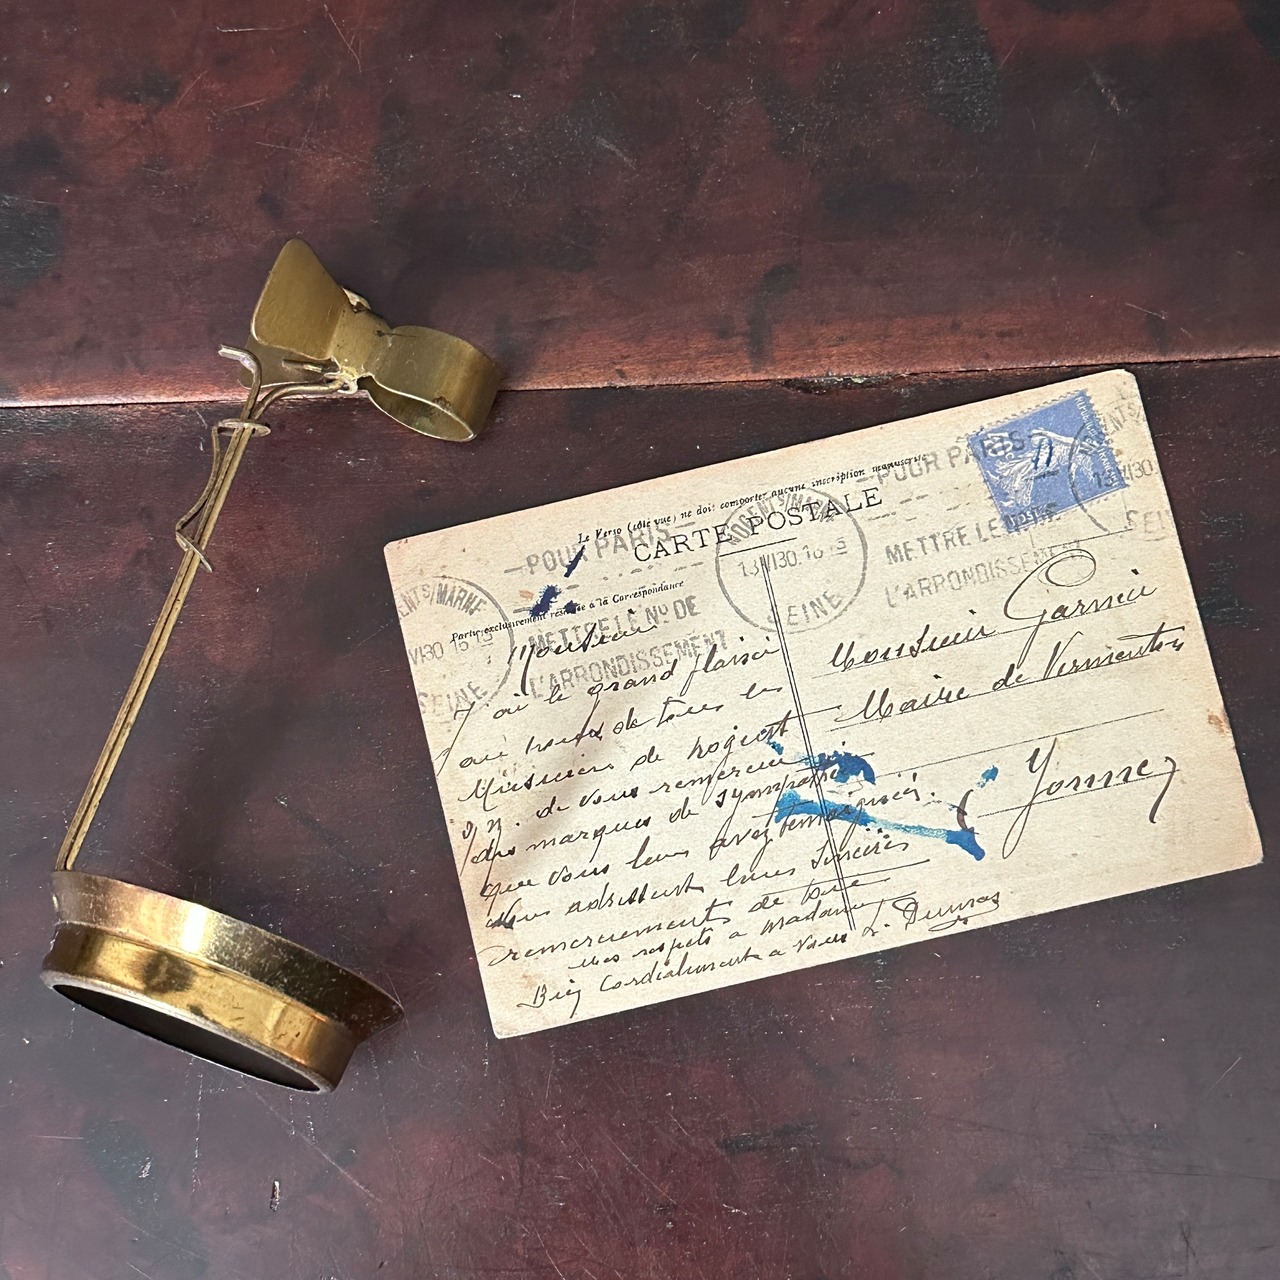 Le Verso (côté vue) ne doit comporter aucune inscription manuscrite
CARTE POSTALE
Partie exclusivement réservée à la Correspondance
POUR PARIS
METTRE LE No DE
L'ARRONDISSEMENT
NOGENT S/MARNE
13 VI 30. 16 15
SEINE
POUR PARIS
METTRE LE
L'ARRONDISSEMENT
13 VI 30.
ENT S/MARNE
VI 30 16 15
SEINE
Monsieur
J'ai le grand plaisir
au nom de tous les
Musiciens de Nogent
de vous remercier
des marques de sympathie
que vous leur avez témoignées.
Vous adressent leurs sincères
remerciements
mes respects a Madame
Bien Cordialement a Vous L. Dumas
Monsieur Garnier
Maire de Vermenton
Yonne